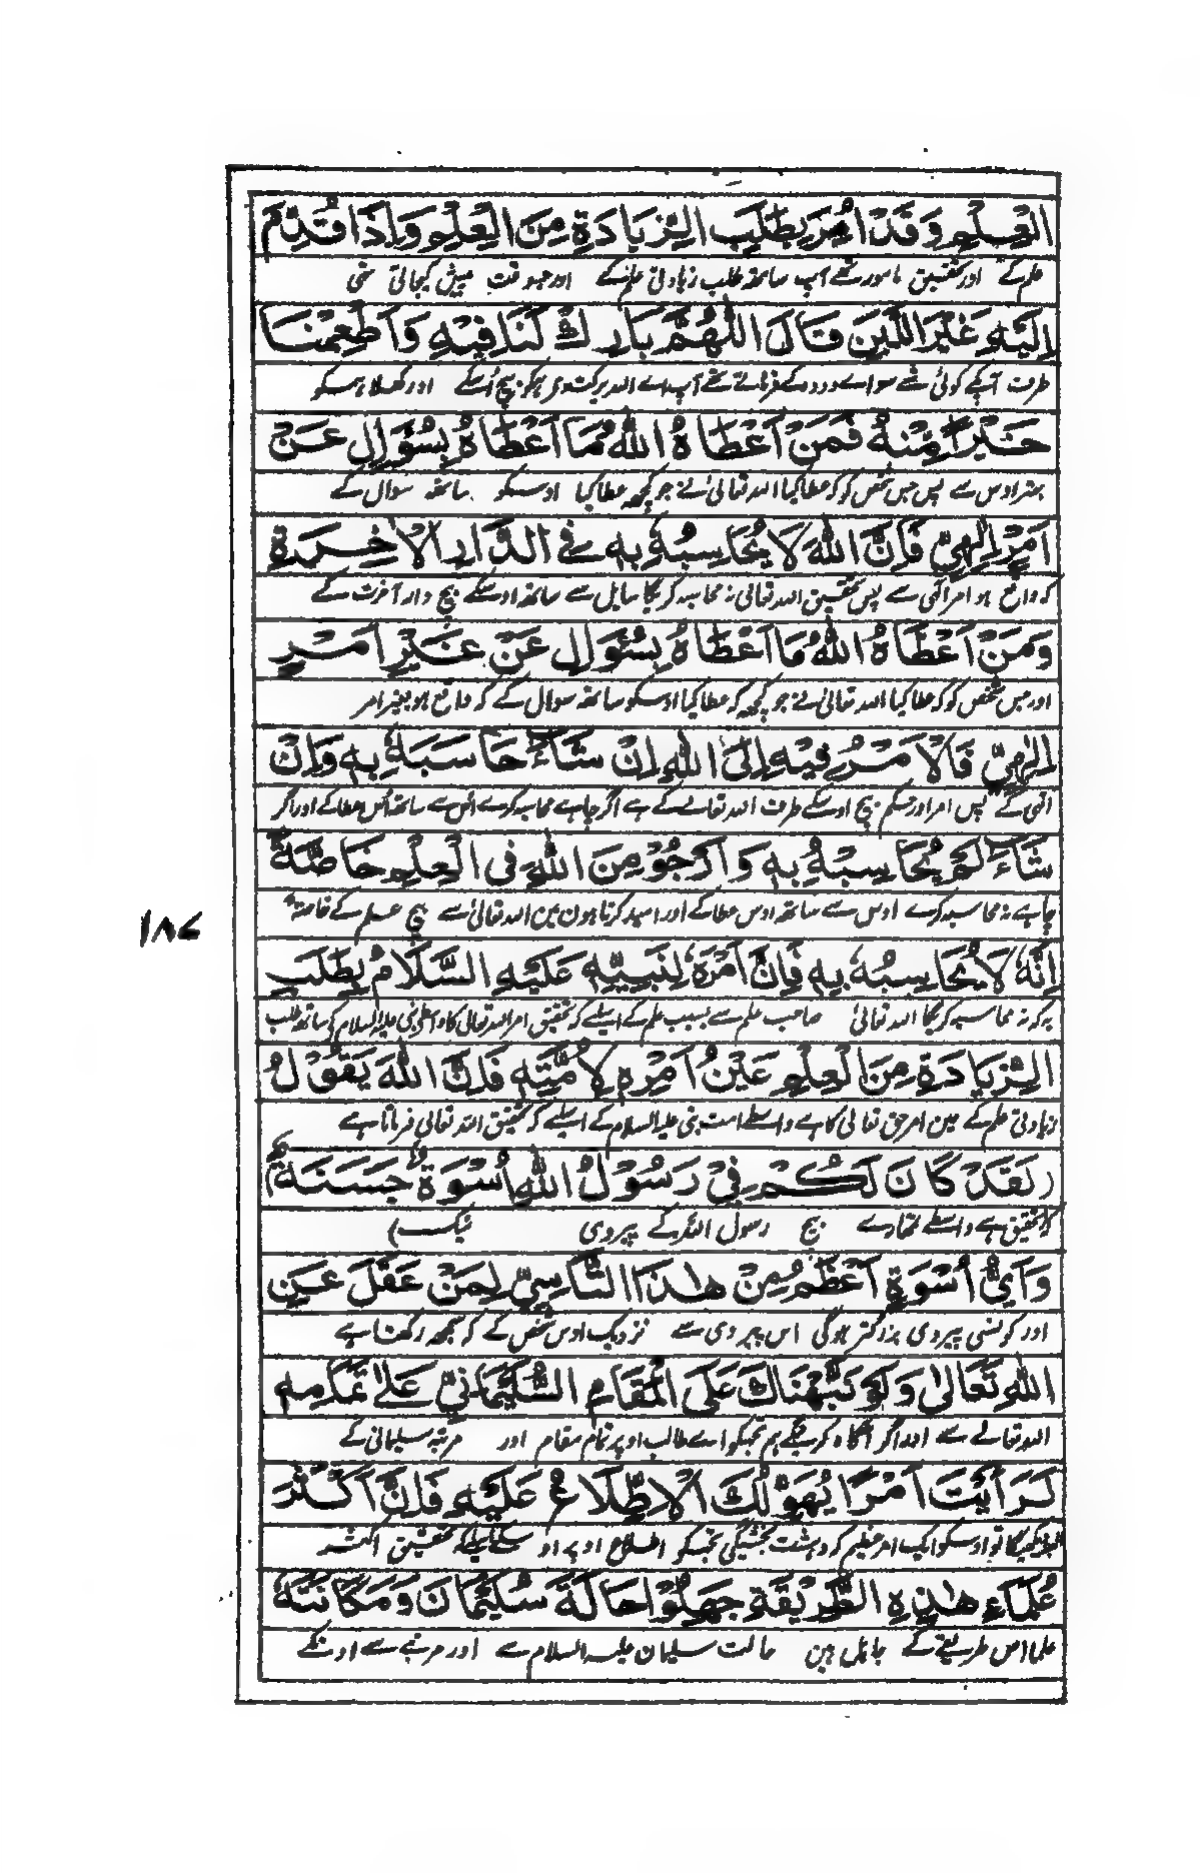 الْعِلْمِ وَقَدْ اُمِرَ بِطَلَبِ الزِّيَادَةِ مِنَ الْعِلْمِ وَاِذَا قُدِّمَ
علم کے اور تحقیق مامور تھے آپ ساتھ طلب زیادتی علم کے اور جبوقت پیش کیجاتی تھی
اِلَيْهِ غَيْرُ اللَّبَنِ قَالَ اللّٰهُمَّ بَارِكْ لَنَا فِيْهِ وَاَطْعِمْنَا
طرف آپکے کوئی شے سواے دودہ کے فرماتے تھے آپ اے اللہ برکت دی ہمکو بیچ اُسکے اور کھلا ہمسکو
خَيْرًا مِّنْهُ فَمَنْ اَعْطَاهُ اللّٰهُ مَا اَعْطَاهُ بِسُؤَالٍ عَنْ
بہتر اوس سے پس جس شخص کو کہ عطا کیا اللہ تعالیٰ نے جو کچھ عطا کیا اوسکو ساتھ سوال کے
اَمْرٍ اِلٰهِيٍّ فَاِنَّ اللّٰهَ لَا يُحَاسِبُهٗ بِهٖ فِي الدَّارِ الْاٰخِرَةِ
کہ واقع ہو امر الٰہی سے پس تحقیق اللہ تعالیٰ نہ محاسبہ کریگا سایل سے ساتھ اوسکے بیچ دار آخرت کے
وَمَنْ اَعْطَاهُ اللّٰهُ مَا اَعْطَاهُ بِسُؤَالٍ عَنْ غَيْرِ اَمْرٍ
اور جس شخص کو کہ عطا کیا اللہ تعالیٰ نے جو کچھ کہ عطا کیا اوسکو ساتھ سوال کے کہ واقع ہو بغیر امر
اِلٰهِيٍّ فَالْاَمْرُ فِيْهِ اِلَى اللّٰهِ اِنْ شَآءَ حَاسَبَهٗ بِهٖ وَاِنْ
الٰہی کے پس امر اور حکم بیچ اوسکے طرف اللہ تعالے کے ہے اگر چاہے محاسبہ کرے اُس سے ساتھ اُس عطا کے اور اگر
شَآءَ لَمْ يُحَاسِبْهُ بِهٖ وَاَرْجُوْ مِنَ اللّٰهِ فِي الْعِلْمِ خَاصَّةً
چاہے نہ محاسبہ کرے اوس سے ساتھ اوس عطا کے اور امید کرتا ہون مین اللہ تعالیٰ سے بیچ علم کے خاصۃً
اِنَّهٗ لَا يُحَاسِبُهٗ بِهٖ فَاِنَّ اَمْرَهٗ لِنَبِيِّهٖ عَلَيْهِ السَّلَامُ بِطَلَبِ
یہ کہ نہ محاسبہ کریگا اللہ تعالیٰ صاحب علم سے بسبب علم کے اسلیے کہ تحقیق امر اللہ تعالیٰ کا واسطے نبی علیہ السلام کے ساتھ طلب
الزِّيَادَةِ مِنَ الْعِلْمِ عَيْنُ اَمْرِهٖ لِاُمَّتِهٖ فَاِنَّ اللّٰهَ يَقُوْلُ
زیادتی علم کے عین امر حق تعالیٰ کا ہے واسطے امت نبی علیہ السلام کے اسلیے کہ تحقیق اللہ تعالیٰ فرماتا ہے
(لَقَدْ كَانَ لَكُمْ فِيْ رَسُوْلِ اللّٰهِ اُسْوَةٌ حَسَنَةٌ)
تحقیق ہے واسطے تمہارے بیچ رسول اللہ کے پیروی نیک)
وَاَيُّ اُسْوَةٍ اَعْظَمُ مِنْ هٰذَا التَّاَسِّيْ لِمَنْ عَقَلَ عَنِ
اور کونسی پیروی بزرگتر ہوگی اس پیروی سے نزدیک اوس شخص کے کہ سمجھ رکھتا ہے
اللّٰهِ تَعَالٰى وَلَوْ نَبَّهْنَاكَ عَلَى الْمَقَامِ السُّلَيْمَانِيِّ عَلٰى تَمَامِهٖ
اللہ تعالے سے اور اگر آگاہ کرینگے ہم تجکو اے طالب اوپر تمام مقام اور مرتبہ سلیمانی کے
لَرَاَيْتَ اَمْرًا يُهَوِّلُكَ الْاِطِّلَاعُ عَلَيْهِ فَاِنَّ اَكْثَرَ
تو اوسکو ایک امر عظیم کہ دہشت بخشیگی تجکو اطلاع اوپر اوسکے اسلیے کہ تحقیق اکثر
عُلَمَاءِ هٰذِهِ الطَّرِيْقَةِ جَهِلُوْا حَالَةَ سُلَيْمَانَ وَمَكَانَتَهٗ
علما اس طریقے کے جاہل ہین حالت سلیمان علیہ السلام سے اور مرتبے سے اونکے
۱۸۷